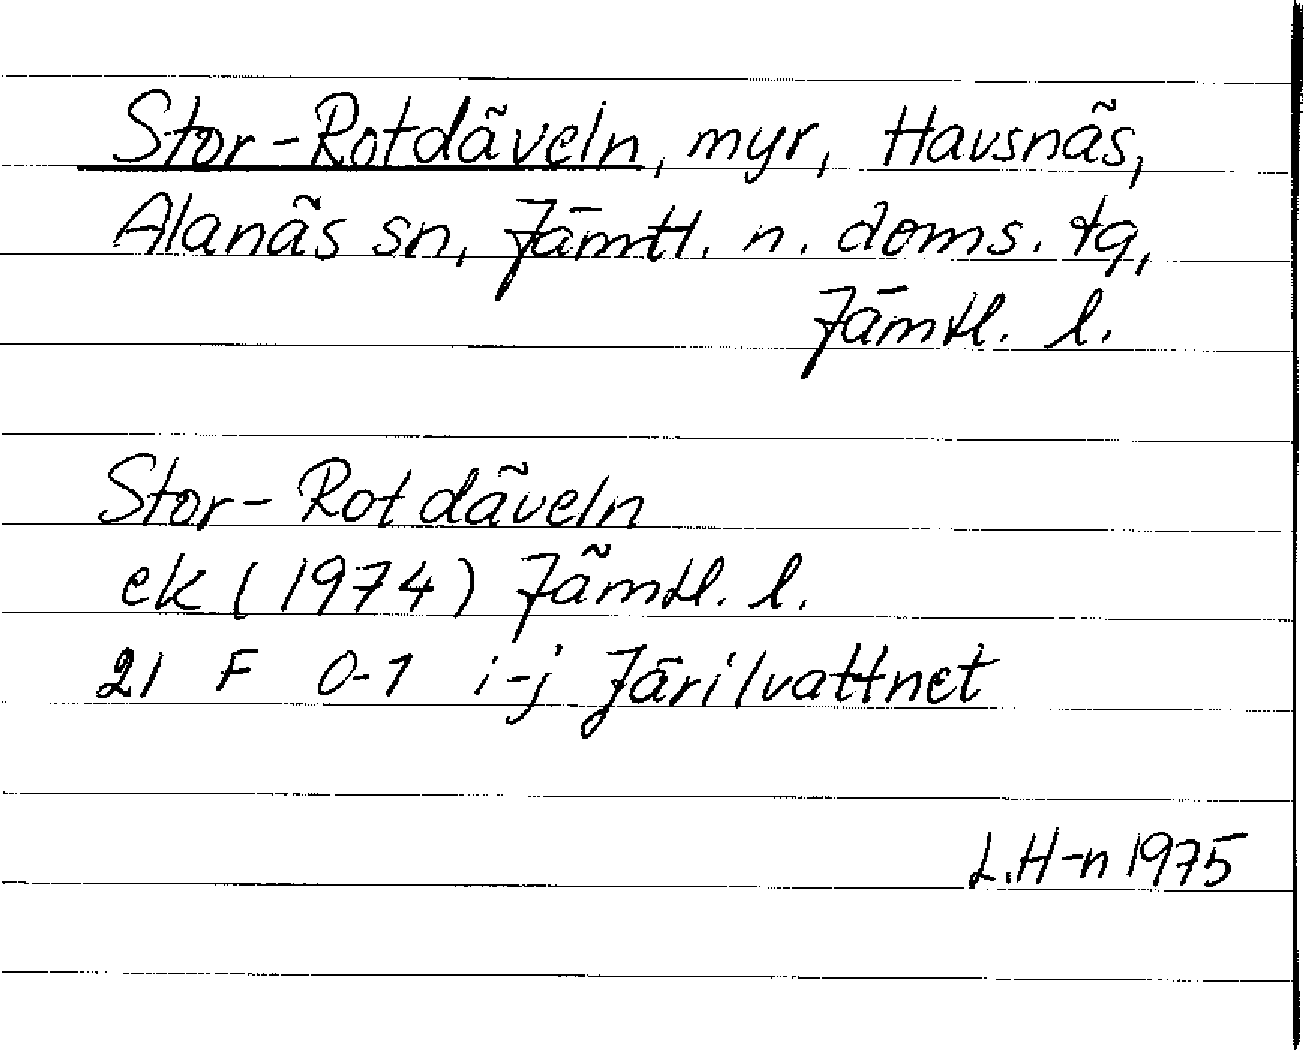 Stor-Rotdäveln, myr, Havsnäs,
Alanäs sn, Jämtl. n. doms. tg,
Jämtl. l.
Stor-Rotdäveln
ek (1974) Jämtl. l.
21 F 0-1 i-j Järilvattnet
L.H-n 1975